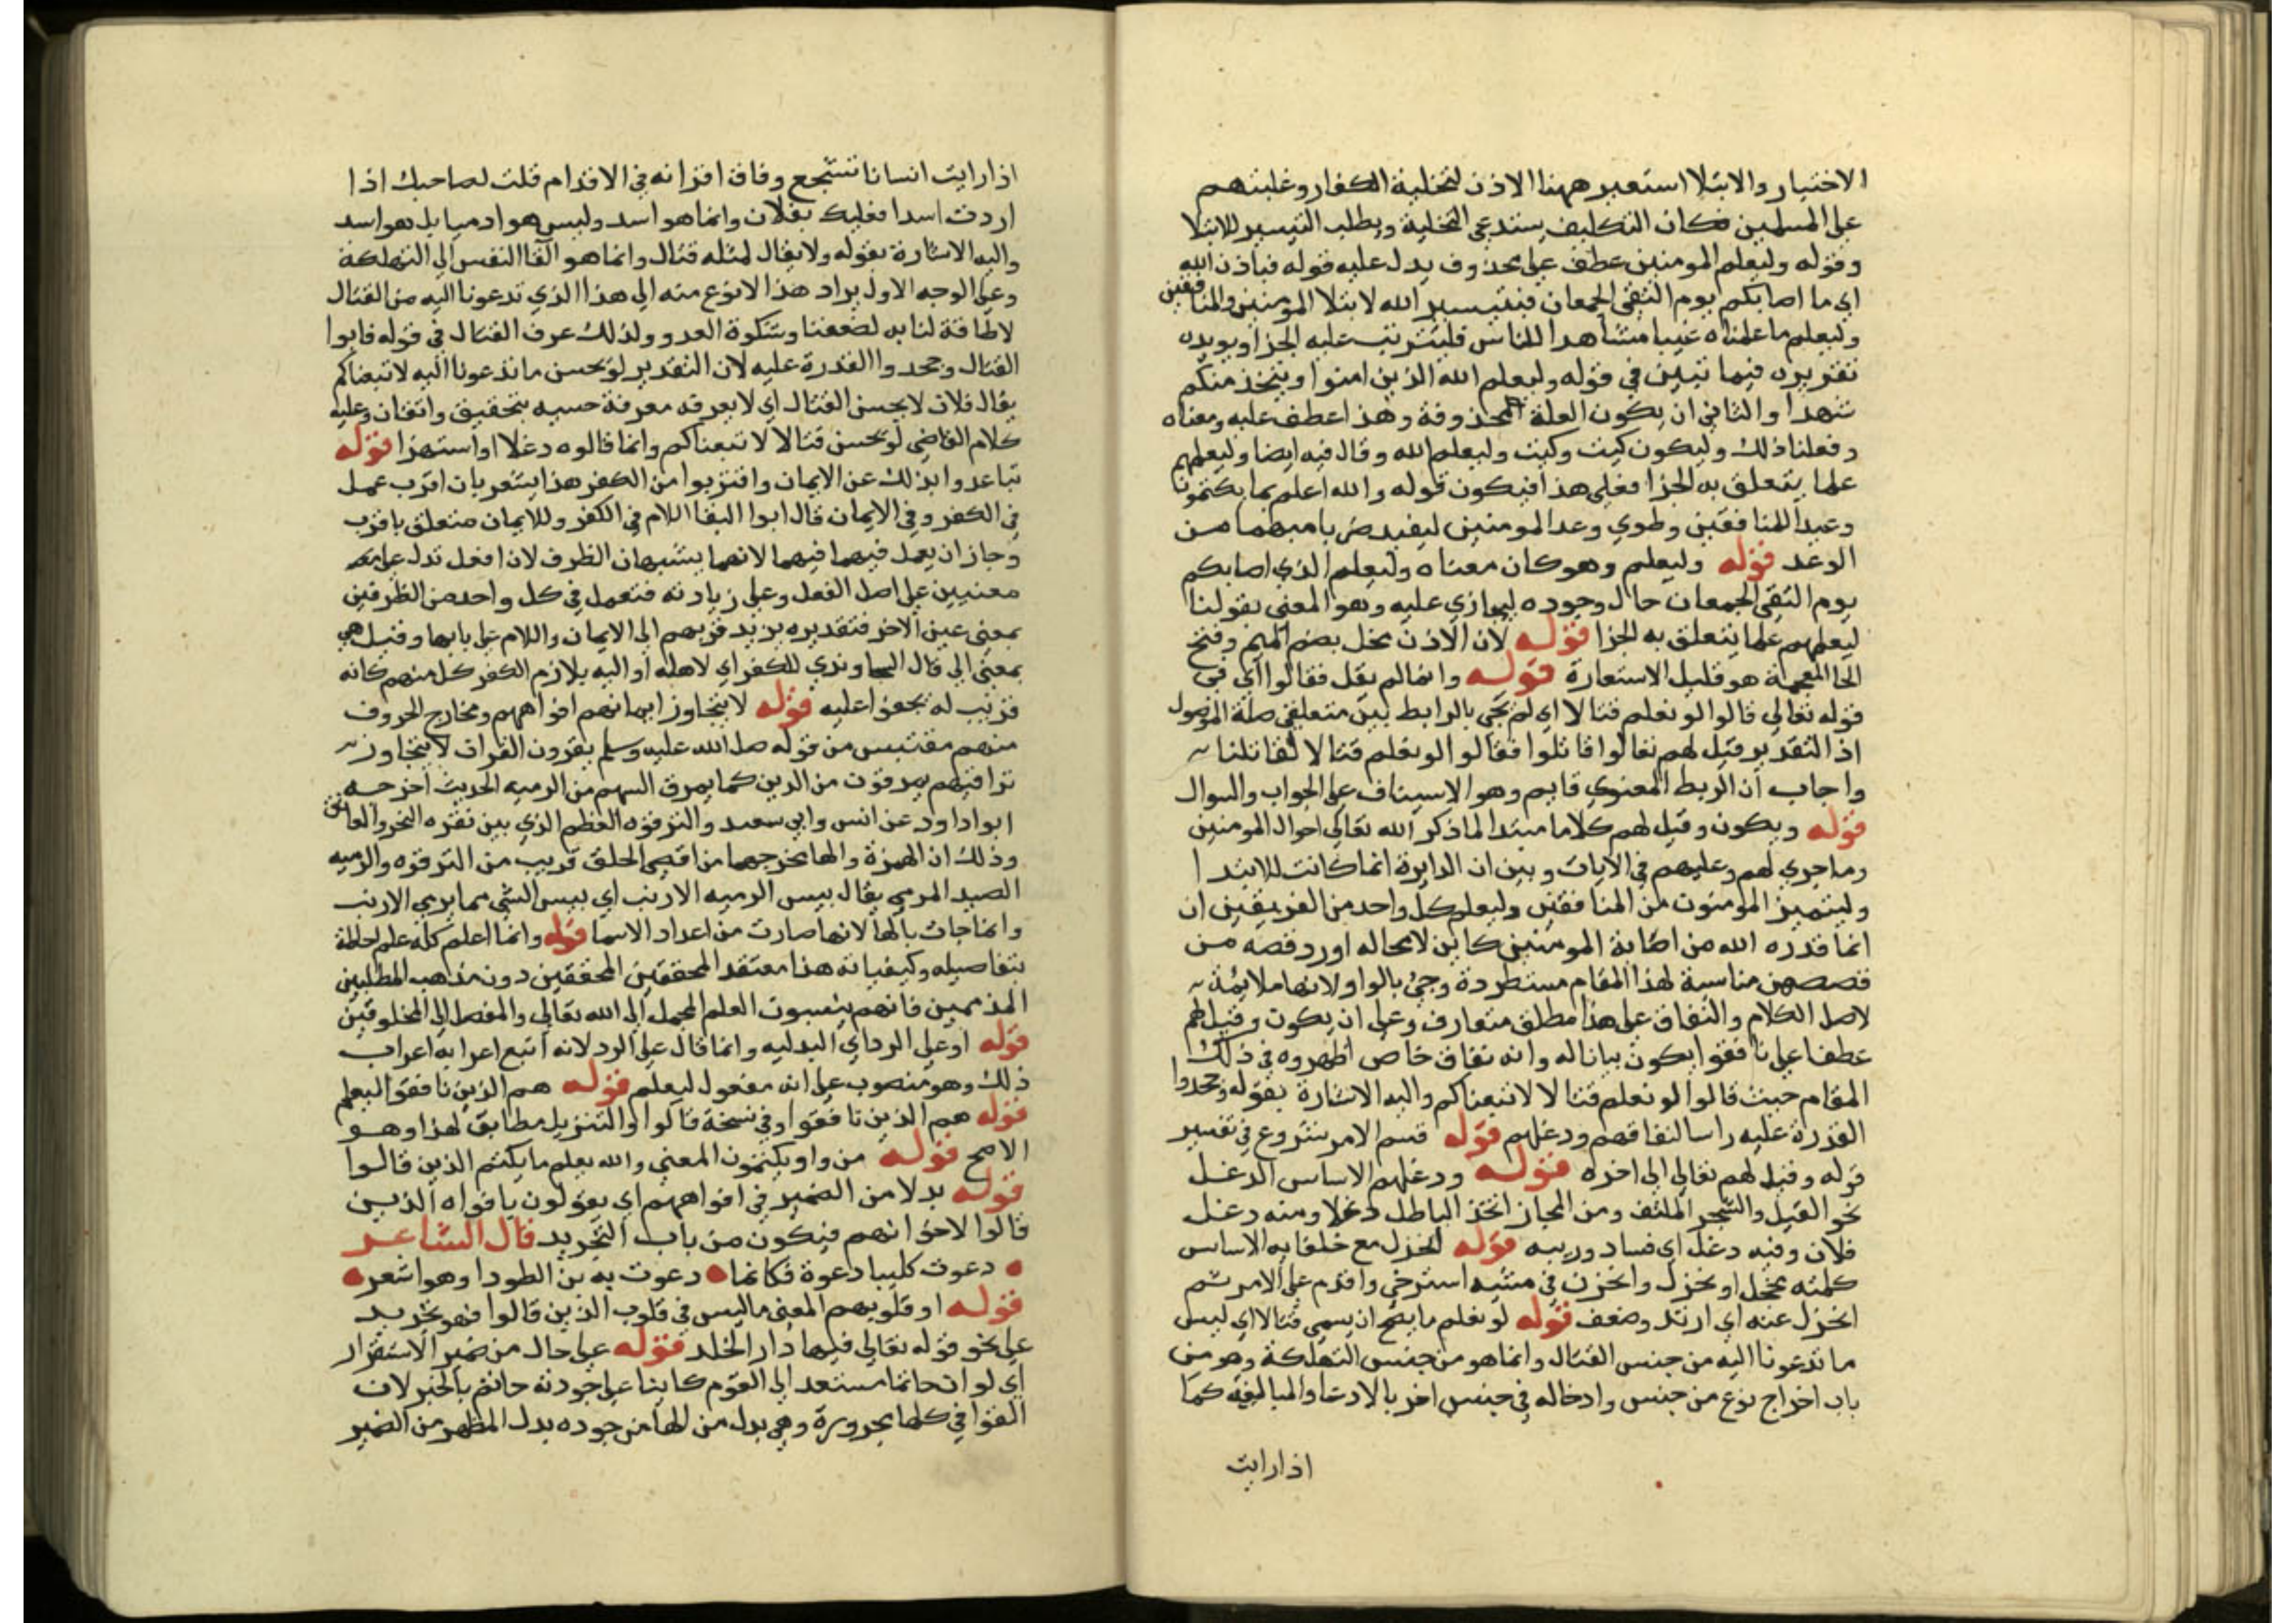 الاختيار والابتلا استعير ههنا الاذن لتخلية الكفار وغلبتهم
على المسلمين فكان التكليف يستدعي التخلية ويطلب التيسير للابتلا
وقوله وليعلم المومنين عطف على محذوف يدل عليه قوله فباذن الله
اي ما اصابكم يوم التقى الجمعان فبتيسير الله لابتلا المومنين والمنافقين
وليعلم ما علمناه غيبا مشاهدا للناس فليترتب عليه الجزا ويويده
تقريره فيما تبين في قوله وليعلم الله الذين امنوا ويتخذ منكم
شهدا والثاني ان يكون العلة المحذوفة وهذا عطف عليه ومعناه
وفعلنا ذلك وليكون كيت وكيت وليعلم الله وقال فيه ايضا وليعلمهم
علما يتعلق به الجزا فعلى هذا فيكون قوله والله اعلم بما يكتمون
وعيد المنافقين وطوي وعد المومنين ليفيد ضربا مبهما من
الوعد قوله وليعلم وهو كان معناه وليعلم الذي اصابكم
يوم التقى الجمعان حال وجوده ليجازي عليه وهو المعنى بقولنا
ليعلمهم علما يتعلق به الجزا قوله لان الاذن مخل بضم الميم وفتح
الخا المعجمة هو قليل الاستعارة قوله وانما لم يقل فقالوا اي في
قوله تعالى قالوا لو نعلم قتالا اي لم يجي بالرابط بين متعلقي صلة الموصول
اذ التقدير قيل لهم تعالوا قاتلوا فقالوا لو نعلم قتالا لقاتلنا
واجاب ان الربط المعنوي قايم وهو الاستيناف على الجواب والسوال
قوله ويكون وقيل لهم كلاما مبتدا لما ذكر الله تعالى احوال المومنين
وما جري لهم وعليهم في الايات وبين ان الدايرة انما كانت للابتدا
وليتميز المومنون من المنافقين وليعلم كل واحد من الفريقين ان
انما قدره الله من اصابة المومنين كاين لا محاله اورد قصه من
قصصهن مناسبة لهذا المقام مستطردة وجي بالواو لانها ملايمة
لاصل الكلام والنفاق على هذا مطلق متعارف وعلى ان يكون وقيل لهم
عطفا على نافقوا يكون بيانا له وانه نفاق خاص اظهروه في ذلك
المقام حيث قالوا لو نعلم قتالا لاتبعناكم واليه الاشارة بقوله وجحدوا
القدرة عليه راسا لنفاقهم ودغلهم قوله قسم الامر شروع في تفسير
قوله وقيل لهم تعالى الى اخره قوله ودغلهم الاساس الدغل
نحو الغيل والشجر الملتف ومن المجاز اتخذ الباطل دغلا ومنه دغل
فلان وفيه دغل اي فساد وريبه قوله انخزل مع خلفا به الاساس
كلمته وانخزل في مشيه استرخي واقدم على الامر ثم
انخزل عنه اي ارتد وضعف قوله لو نعلم ما يصح ان يسمى قتالا اي ليس
ما تدعونا اليه من جنس القتال وانما هو من جنس التهلكة وهو من
باب اخراج نوع من جنس وادخاله في جنس اخر بالادعا والمبالغة كما
اذا رايت
اذا رايت انسانا تشجع وفاق اقرانه في الاقدام قلت لصاحبك اذا
اردت اسدا فعليك بفلان وانما هو اسد وليس هو ادميا بل هو اسد
واليه الاشارة بقوله ولا يقال لمثله قتال وانما هو القا النفس الى التهلكة
وعلى الوجه الاول يراد هذا الانوع منه الى هذا الذي تدعونا اليه من القتال
لا طاقة لنا به لضعفنا وشكوة العدو ولذلك عرف القتال في قوله فابوا
القتال وجحدوا القدرة عليه لان التقدير لو نحسن ما تدعونا اليه لاتبعناكم
يقال فلان لا يحسن القتال اي لا يعرفه معرفة حسنه بتحقيق واتقان وعليه
كلام القاضي لو نحسن قتالا لاتبعناكم وانما قالوه دغلا او استهزا قوله
تباعدوا بذلك عن الايمان واقتربوا من الكفر هذا يشعر بان اقرب عمل
في الكفر وفي الايمان قال ابوا البقا اللام في الكفر وللايمان متعلق باقرب
وجاز ان يعمل فيهما فيهما لانهما يشبهان الظرف لان افعل تدل على
معنيين على اصل الفعل وعلى زيادته فتعمل في كل واحد من الظرفين
بمعنى عين الاخر فتقديره يزيد قربهم الى الايمان واللام على بابها وقيل هي
بمعنى الى قال السجاوندي للكفر اي لاهله او اليه يلازم الكفر كل منهم كانه
قريب له قوله لا يتجاوز ايمانهم افواههم ومخارج الحروف
منهم مقتبس من قوله صلى الله عليه وسلم يقرون القران لا يتجاوز
تراقيهم يمرقون من الدين كما يمرق السهم من الرميه الحديث اخرجه
ابوا داود عن انس وابي سعيد والترقوه العظم الذي بين نقره النحر والعاتق
وذلك ان الهمزة والها مخرجهما من اقصى الحلق قريب من الترقوه والرميه
الصيد المرمي يقال بيس الرميه الارنب اي بيس الشي مما يرمي الارنب
وانما جات بالها لانها صارت من اعداد الاسما قوله وانما اعلم كله علم احاطة
بتفاصيله وكيفياته هذا معتقد المحققين المحققين دون مذهب المبطلين
المذممين فانهم ينسبون العلم المجمل الى الله تعالى والمفصل الى المخلوقين
قوله او على الرد اي البدليه وانما قال على الرد لانه اتبع اعرابه اعراب
ذلك وهو منصوب على انه مفعول ليعلم قوله هم الذين نافقوا ليعلم
قوله هم الذين نافقوا وفي نسخة قالوا والتنزيل مطابق لهذا وهو
الاصح قوله من واو يكتمون المعنى والله يعلم ما يكتم الذين قالوا
قوله بدلا من الضمير في افواههم اي يقولون بافواه الذين
قالوا لاخوانهم فيكون من باب التجريد قال الشاعر
دعوت كليبا دعوة فكانما دعوت به بن الطود او هو اشعر
قوله او قلوبهم المعنى ما ليس في قلوب الذين قالوا فهو تجريد
على نحو قوله تعالى فيها دار الخلد قوله على حال من ضمير الاستقرار
اي لو ان حاتما مستعد الى القوم كاينا على جودته حاتم بالجر لان
القوافي كلها مجرورة وهي بدل من الها من جوده بدل المظهر من الضمير